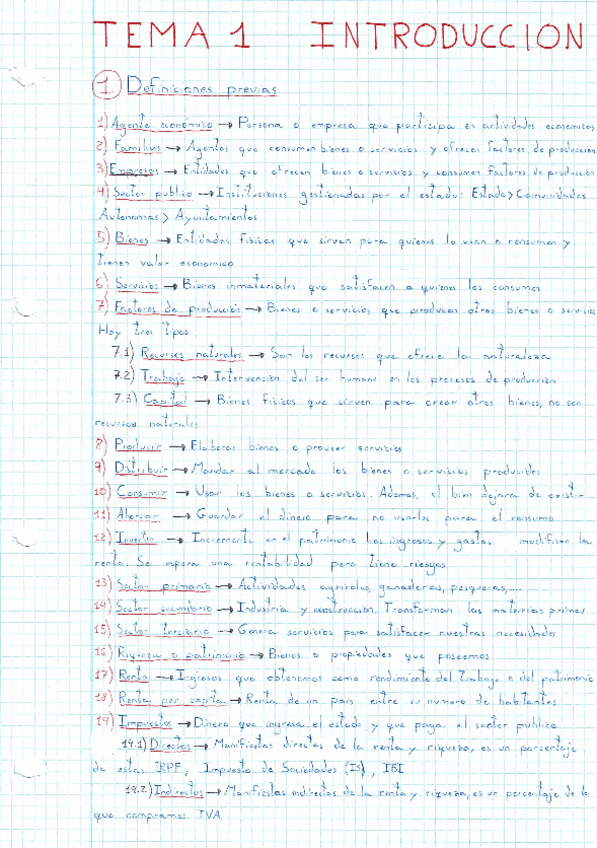 TEMA 1 INTRODUCCION
1 Definiciones previas
1) Agente económico → Persona o empresa que participa en actividades economicas
2) Familias → Agentes que consumen bienes o servicios y ofrecen factores de producción
3) Empresas → Entidades que ofrecen bienes o servicios y consumen factores de producción
4) Sector publico → Instituciones gestionadas por el estado: Estado > Comunidades
Autonomas > Ayuntamientos
5) Bienes → Entidades fisicas que sirven para quienes lo van a consumir y
tienen valor economico
6) Servicios → Bienes inmateriales que satisfacen a quienes los consumen
7) Factores de producción → Bienes o servicios que producen otros bienes o servicios
Hay tres tipos
7.1) Recursos naturales → Son los recursos que ofrece la naturaleza
7.2) Trabajo → Intervención del ser humano en los procesos de producción
7.3) Capital → Bienes fisicos que sirven para crear otros bienes, no son
recursos naturales
8) Producir → Elaborar bienes o proveer servicios
9) Distribuir → Mandar al mercado los bienes o servicios producidos
10) Consumir → Usar los bienes o servicios. Ademas, el bien dejara de existir
11) Ahorrar → Guardar el dinero para no usarlos para el consumo
12) Invertir → Incremento en el patrimonio los ingresos y gastos modifican la
renta. Se espera una rentabilidad pero tiene riesgos
13) Sector primario → Actividades agricolas, ganaderas, pesqueras,...
14) Sector secundario → Industria y construccion. Transforman las materias primas
15) Sector terciario → Genera servicios para satisfacer nuestras necesidades
16) Riqueza o patrimonio → Bienes o propiedades que poseemos
17) Renta → Ingresos que obtenemos como rendimiento del trabajo o del patrimonio
18) Renta per capita → Renta de un pais entre su numero de habitantes
19) Impuestos → Dinero que ingresa el estado y que paga el sector publico
19.1) Directos → Manifiestas directas de la renta y riqueza, es un porcentaje
de estas IRPF, Impuesto de Sociedades (IS), IBI
19.2) Indirectos → Manifiestas indirectas de la renta y riqueza, es un porcentaje de lo
que compramos IVA